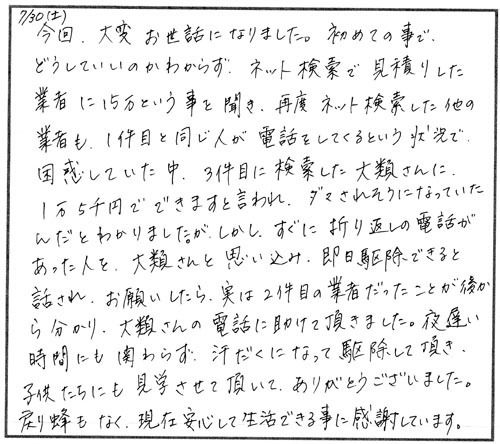 7/30(土)
今回、大変お世話になりました。初めての事で、
どうしていいのかわからず、ネット検索で見積りした
業者に15万という事を聞き、再度ネット検索した他の
業者も、1件目と同じ人が電話をしてくるという状況で、
困惑していた中、3件目に検索した大類さんに、
1万5千円でできますと言われ、ダマされそうになっていた
んだとわかりましたが、しかし、すぐに折り返しの電話が
あった人を、大類さんと思い込み、即日駆除できると
話され、お願いしたら、実は2件目の業者だったことが後か
ら分かり、大類さんの電話に助けて頂きました。夜遅い
時間にも関わらず、汗だくになって駆除して頂き、
子供たちにも見学させて頂いて、ありがとうございました。
戻り蜂もなく、現在安心して生活できる事に感謝しています。